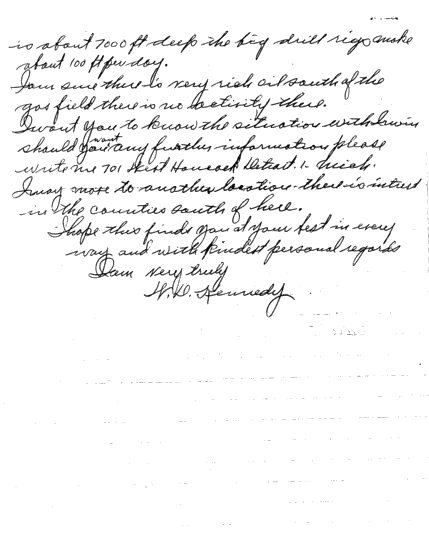 is about 7000 ft deep the big drill rigs make
about 100 ft per day.
I am sure there is very rich oil south of the
gas field there is no activity there.
I want you to know the situation with
should you want any further information please
write me 701 West Hancock Detroit. 1. Mich.
I may move to another location there is
in the counties south of here.
I hope this finds you at your best in every
way and with kindest personal regards
I am very truly
W.D. Kennedy